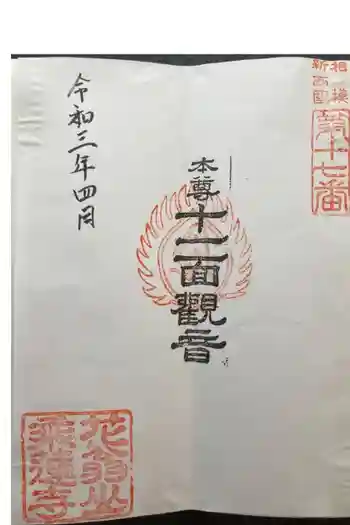 相模
新西國
第十七番
本尊
十一面觀音
令和三年四月
花翁山
乘蓮寺